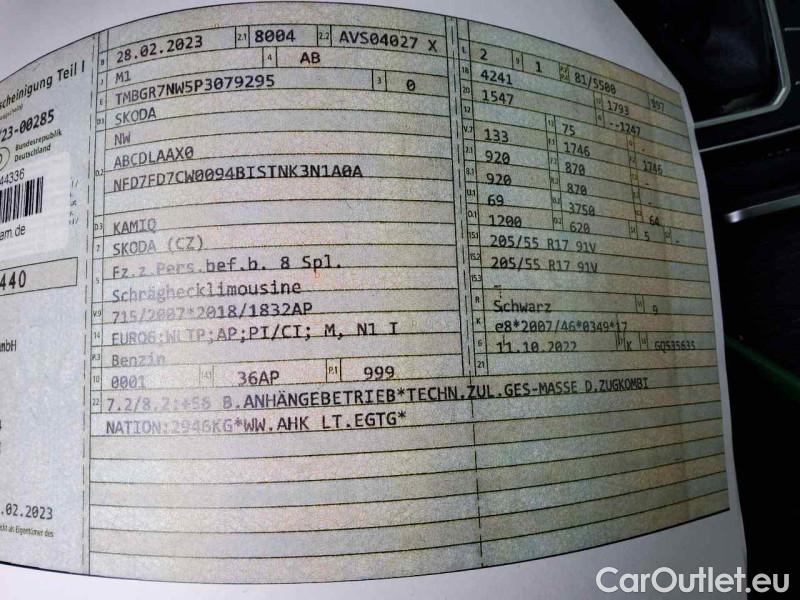 scheinigung Teil I
723-00285
Bundesrepublik
Deutschland
44336
am.de
440
mbH
.02.2023
B 28.02.2023 2.1 8004 2.2 AVS04027 X
J M1 4 AB
E TMBGR7NW5P3079295 3 0
D.1 SKODA
NW
D.2 ABCDLAAX0
NFD7FD7CW0094BISTNK3N1A0A
D.3 KAMIQ
SKODA (CZ)
5 Fz.z.Pers.bef.b. 8 Spl.
Schräghecklimousine
V.9 715/2007*2018/1832AP
14 EURO6;WLTP;AP;PI/CI; M, N1 I
P.3 Benzin
10 0001 14.1 36AP P.1 999
22 7.2/8.2:+56 B.ANHÄNGEBETRIEB*TECHN.ZUL.GES-MASSE D.ZUGKOMBI
NATION:2946KG*WW.AHK LT.EGTG*
L 2 9 1 81/5500
18 4241 897
20 1547 1793
12 - --1247
V.7 133 75 -
7.1 920 1746 1746
8.1 920 870 -
U.1 69 870 -
O.1 1200 3750 64
620 5 -
15.1 205/55 R17 91V
15.2 205/55 R17 91V
15.3 -
R Schwarz 9
K e8*2007/46*0349*17
6 11.10.2022 17 K 16 GQ535635
21
CarOutlet.eu